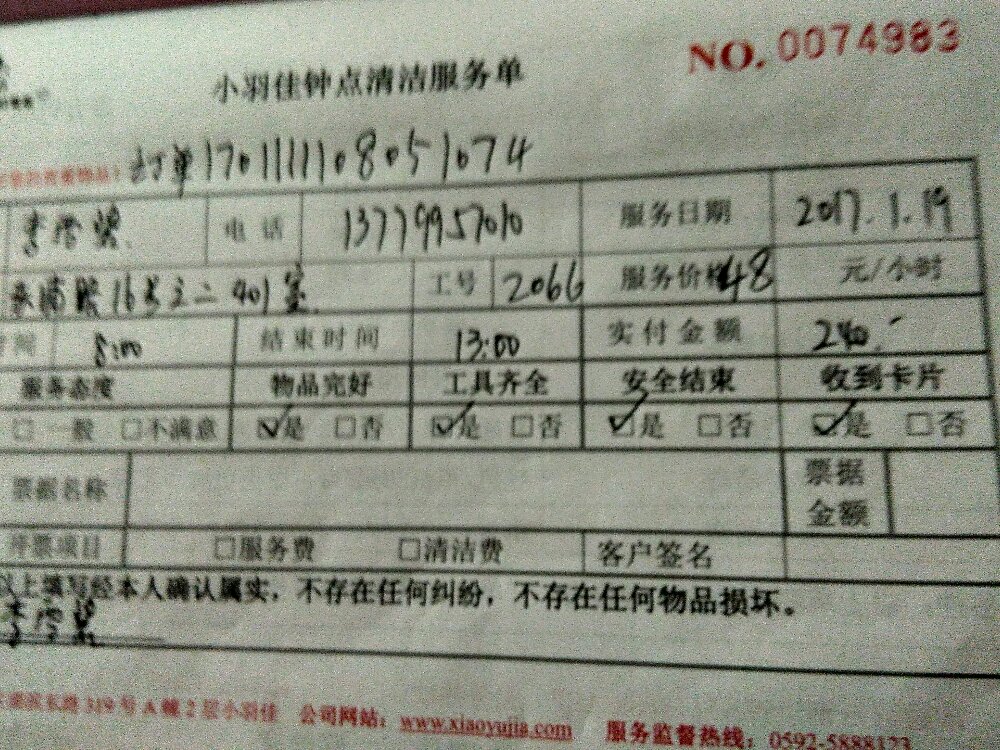 NO. 0074983
小羽佳钟点清洁服务单
订单170111108051074
电话 13779957010 服务日期 2017.1.19
16号之二401室 工号 2066 服务价格48 元/小时
8:00 结束时间 13:00 实付金额 240.-
服务态度 物品完好 工具齐全 安全结束 收到卡片
□一般 □不满意 ☑是 □否 ☑是 □否 ☑是 □否 ☑是 □否
票据名称 票据金额
开票项目 □服务费 □清洁费 客户签名
以上填写经本人确认属实，不存在任何纠纷，不存在任何物品损坏。
东路319号A幢2层小羽佳 公司网站：www.xiaoyujia.com 服务监督热线：0592-5888123